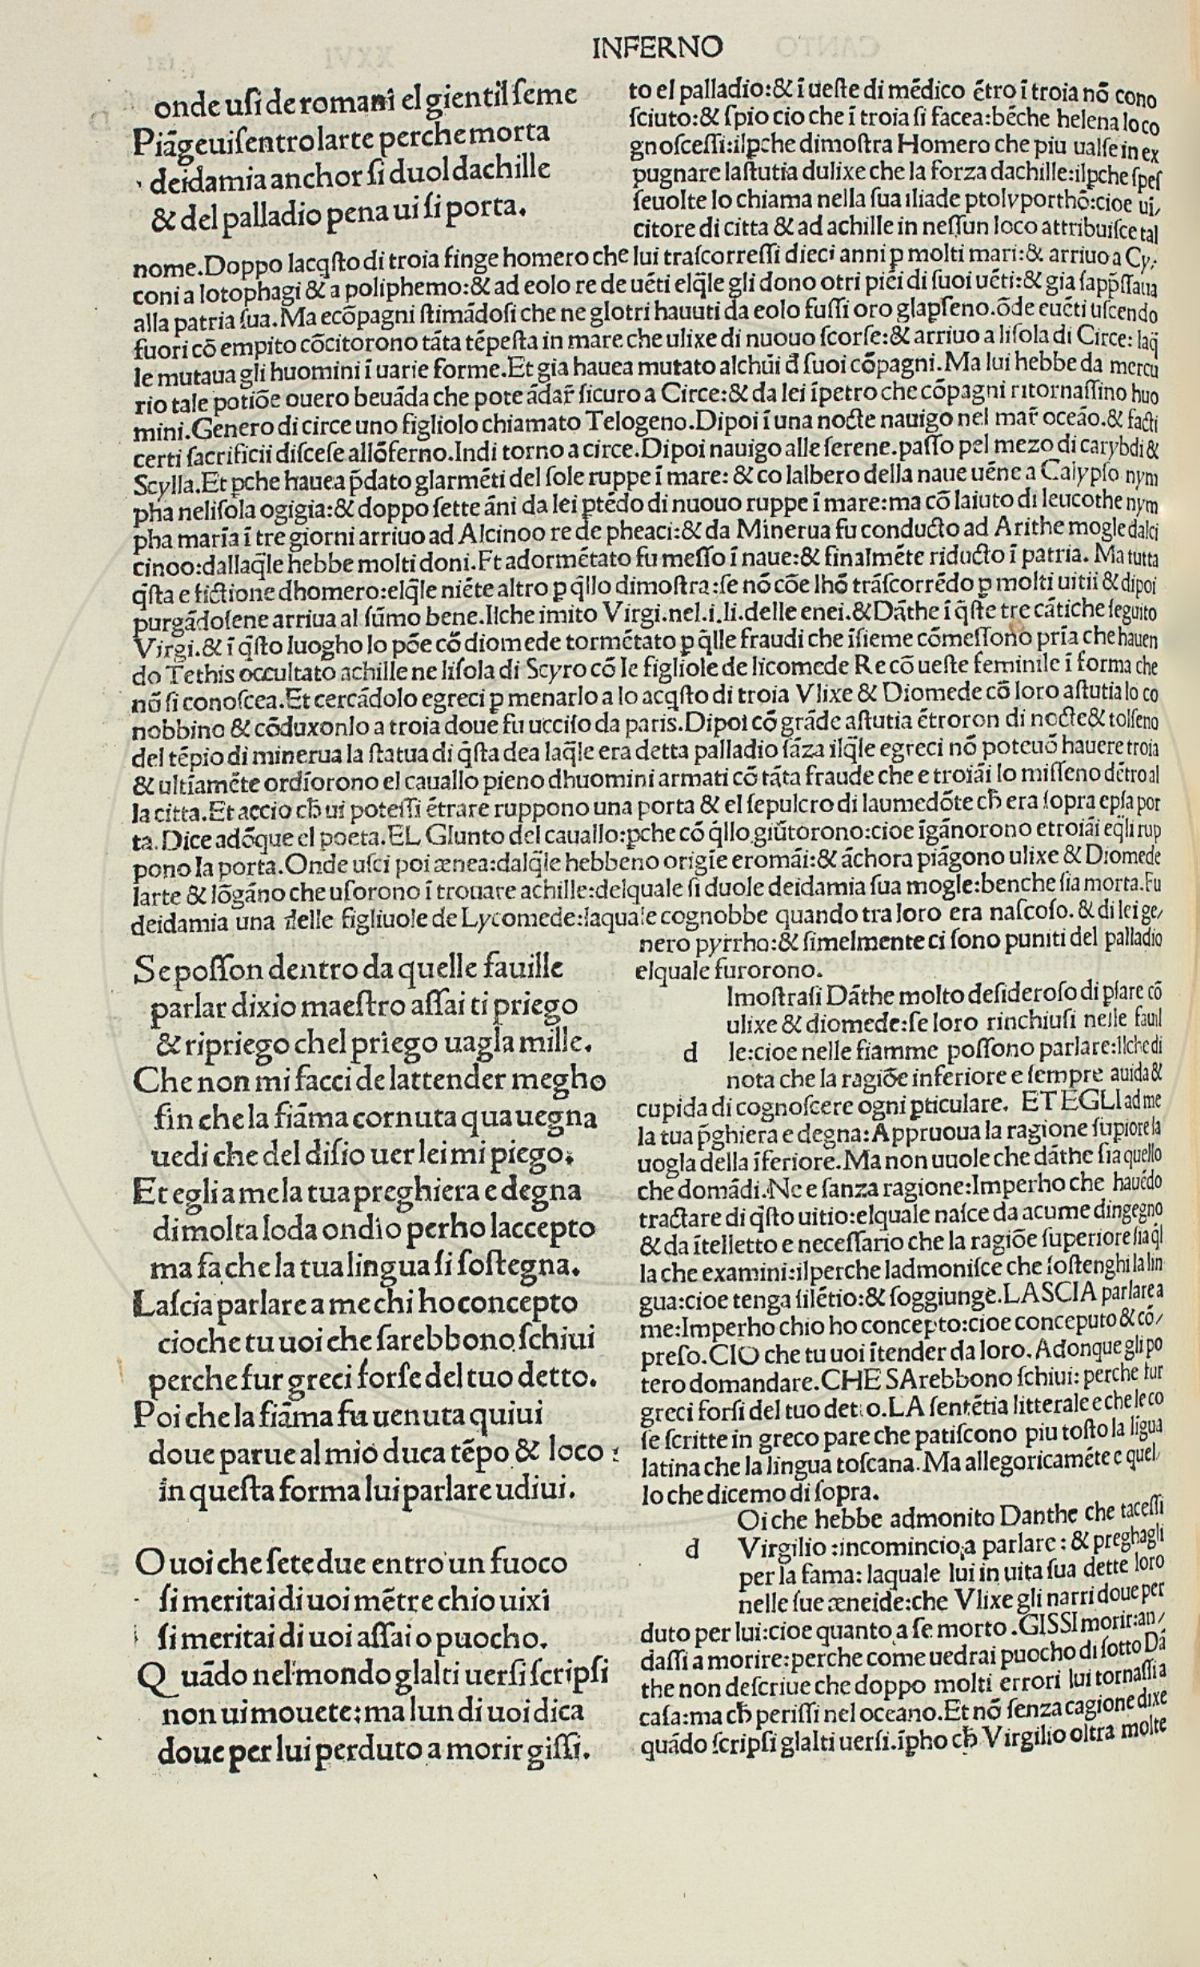 INFERNO
onde usi de romani el gientil seme
Piãgeuisentro larte perche morta
deidamia anchor si duol dachille
& del palladio pena ui si porta.
to el palladio:& ĩ ueste di mẽdico ẽtro ĩ troia nõ cono
sciuto:& spio cio che ĩ troia si facea:bẽche helena lo co
gnoscessi:ilꝑche dimostra Homero che piu ualse in ex
pugnare lastutia dulixe che la forza dachille:ilꝑche spes
seuolte lo chiama nella sua iliade ptolyporthõ:cioe ui/
citore di citta & ad achille in nessun loco attribuisce tal
nome.Doppo lacq̃sto di troia finge homero che lui trascorressi dieci anni ꝑ molti mari:& arriuo a Cy/
coni a lotophagi & a poliphemo:& ad eolo re de uẽti elq̃le gli dono otri piẽi di suoi uẽti:& gia sapp̃ssaua
alla patria sua.Ma ecõpagni stimãdosi che ne glotri hauuti da eolo fussi oro glapseno.õde euẽti uscendo
fuori cõ empito cõcitorono tãta tẽpesta in mare che ulixe di nuouo scorse:& arriuo a lisola di Circe: laq̃
le mutaua gli huomini ĩ uarie forme.Et gia hauea mutato alchũi đ suoi cõpagni.Ma lui hebbe da mercu
rio tale potiõe ouero beuãda che pote ãdar̃ sicuro a Circe:& da lei ĩpetro che cõpagni ritornassino huo
mini.Genero di circe uno figliolo chiamato Telogeno.Dipoi ĩ una nocte nauigo nel mar̃ oceão.& facti
certi sacrificii discese allõferno.Indi torno a circe.Dipoi nauigo alle serene.passo pel mezo di carybdi &
Scylla.Et ꝑche hauea p̃dato glarmẽti del sole ruppe ĩ mare: & co lalbero della naue uẽne a Calypso nym
pha nelisola ogigia:& doppo sette ãni da lei ptẽdo di nuouo ruppe ĩ mare:ma cõ laiuto di leucothe nym
pha marĩa ĩ tre giorni arriuo ad Alcinoo re de pheaci:& da Minerua fu conducto ad Arithe mogle dalci
cinoo:dallaq̃le hebbe molti doni.Et adormẽtato fu messo ĩ naue:& finalmẽte riducto ĩ patria. Ma tutta
q̃sta e fictione dhomero:elq̃le niẽte altro ꝑ q̃llo dimostra:se nõ cõe lhõ trãscorrẽdo ꝑ molti uitii & dipoi
purgãdosene arriua al sũmo bene.Ilche imito Virgi.nel.i.li.delle enei.& Dãthe ĩ q̃ste tre cãtiche seguito
Virgi.& ĩ q̃sto luogho lo põe cõ diomede tormẽtato ꝑ q̃lle fraudi che ĩsieme cõmessono pria che hauen
do Tethis occultato achille ne lisola di Scyro cõ le figliole de licomede Re cõ ueste feminile ĩ forma che
nõ si conoscea.Et cercãdolo egreci ꝑ menarlo a lo acq̃sto di troia Vlixe & Diomede cõ loro astutia lo co
nobbino & cõduxonlo a troia doue fu ucciso da paris.Dipoi cõ grãde astutia ẽtroron di nocte & tolseno
del tẽpio di minerua la statua di q̃sta dea laq̃le era detta palladio sãza ilq̃le egreci nõ poteuõ hauere troia
& ultiamẽte ordĩorono el cauallo pieno dhuomini armati cõ tãta fraude che e troiãi lo misseno dẽtro al
la citta.Et accio cħ ui potessi ẽtrare ruppono una porta & el sepulcro di laumedõte cħ era sopra epsa por
ta.Dice adõque el poeta.EL GIunto del cauallo:ꝑche cõ q̃llo giũtorono:cioe ĩgãnorono etroiãi eq̃li rup
pono la porta.Onde usci poi ænea:dalq̃le hebbeno origĩe eromãi:& ãchora piãgono ulixe & Diomede
larte & lõgãno che usorono ĩ trouare achille:delquale si duole deidamia sua mogle:benche sia morta.Fu
deidamia una delle figliuole de Lycomede:laquale cognobbe quando tra loro era nascoso.& di lei ge/
nero pyrrho:& simelmente ci sono puniti del palladio
elquale furorono.
Se posson dentro da quelle fauille
parlar dixio maestro assai ti priego
& ripriego chel priego uagla mille.
Che non mi facci de lattender megho
fin che la fiãma cornuta qua uegna
uedi che del disio uer lei mi piego.
Et egli a me la tua preghiera e degna
di molta loda ondio perho laccepto
ma fa che la tua lingua si sostegna.
Lascia parlare a me chi ho concepto
cioche tu uoi che sarebbono schiui
perche fur greci forse del tuo detto.
Poi che la fiãma fu uenuta quiui
doue parue al mio duca tẽpo & loco
in questa forma lui parlare udiui.
O uoi che sete due entro un fuoco
si meritai di uoi mẽtre chio uixi
si meritai di uoi assai o puocho.
Quãdo nel mondo glalti uersi scripsi
non ui mouete:ma lun di uoi dica
doue per lui perduto a morir gissi.
Imostrasi Dãthe molto desideroso di ꝑlare cõ
ulixe & diomede:se loro rinchiusi nelle fauil
d le:cioe nelle fiamme possono parlare:Ilche di
nota che la ragiõe inferiore e sempre auida &
cupida di cognoscere ogni ꝑticulare. ET EGLI ad me
la tua p̃ghiera e degna:Appruoua la ragione supiore la
uogla della ĩferiore.Ma non uuole che dãthe sia quello
che domãdi.Ne e sanza ragione:Imperho che hauẽdo
tractare di q̃sto uitio:elquale nasce da acume dingegno
& da ĩtelletto e necessario che la ragiõe superiore sia q̃l
la che examini:ilperche ladmonisce che sostenghi la lin
gua:cioe tenga silẽtio:& soggiunge.LASCIA parlare a
me:Imperho chio ho concepto:cioe conceputo & cõ/
preso.CIO che tu uoi ĩtender da loro.Adonque gli po
tero domandare.CHE SArebbono schiui: perche fur
greci forsi del tuo detto.LA sentẽtia litterale e che le co
se scritte in greco pare che patiscono piu tosto la lĩgua
latina che la lingua toscana.Ma allegoricamẽte e quel/
lo che dicemo di sopra.
Oi che hebbe admonito Danthe che tacessi
d Virgilio:incomincio a parlare: & preghagli
per la fama: laquale lui in uita sua dette loro
nelle sue æneide:che Vlixe gli narri doue per
duto per lui:cioe quanto a se morto.GISSI morir:an/
dassi a morire:perche come uedrai puocho di sotto Dã
the non descriue che doppo molti errori lui tornassi a
casa:ma cħ perissi nel oceano.Et nõ senza cagione dixe
quãdo scripsi glalti uersi.ĩpho cħ Virgilio oltra molte